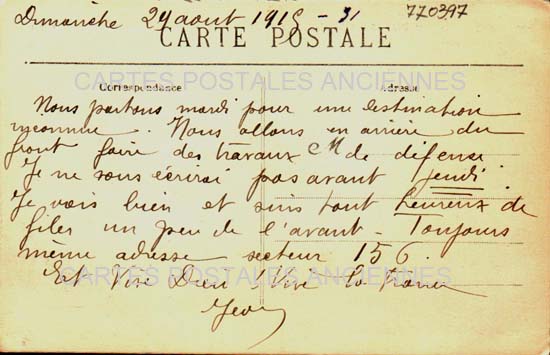 Dimanche 29 aout 1915 - 31 770397
CARTE POSTALE
CARTES POSTALES ANCIENNES
Correspondance Adresse
Nous partons mardi pour une destination
inconnue. Nous allons en arrière du
front faire des travaux de défense.
Je ne vous écrirai pas avant jeudi.
Je vais bien et suis tout heureux de
filer un peu de l'avant - Toujours
même adresse secteur 156.
Et Vive Dieu Vive la France
CARTES POSTALES ANCIENNES